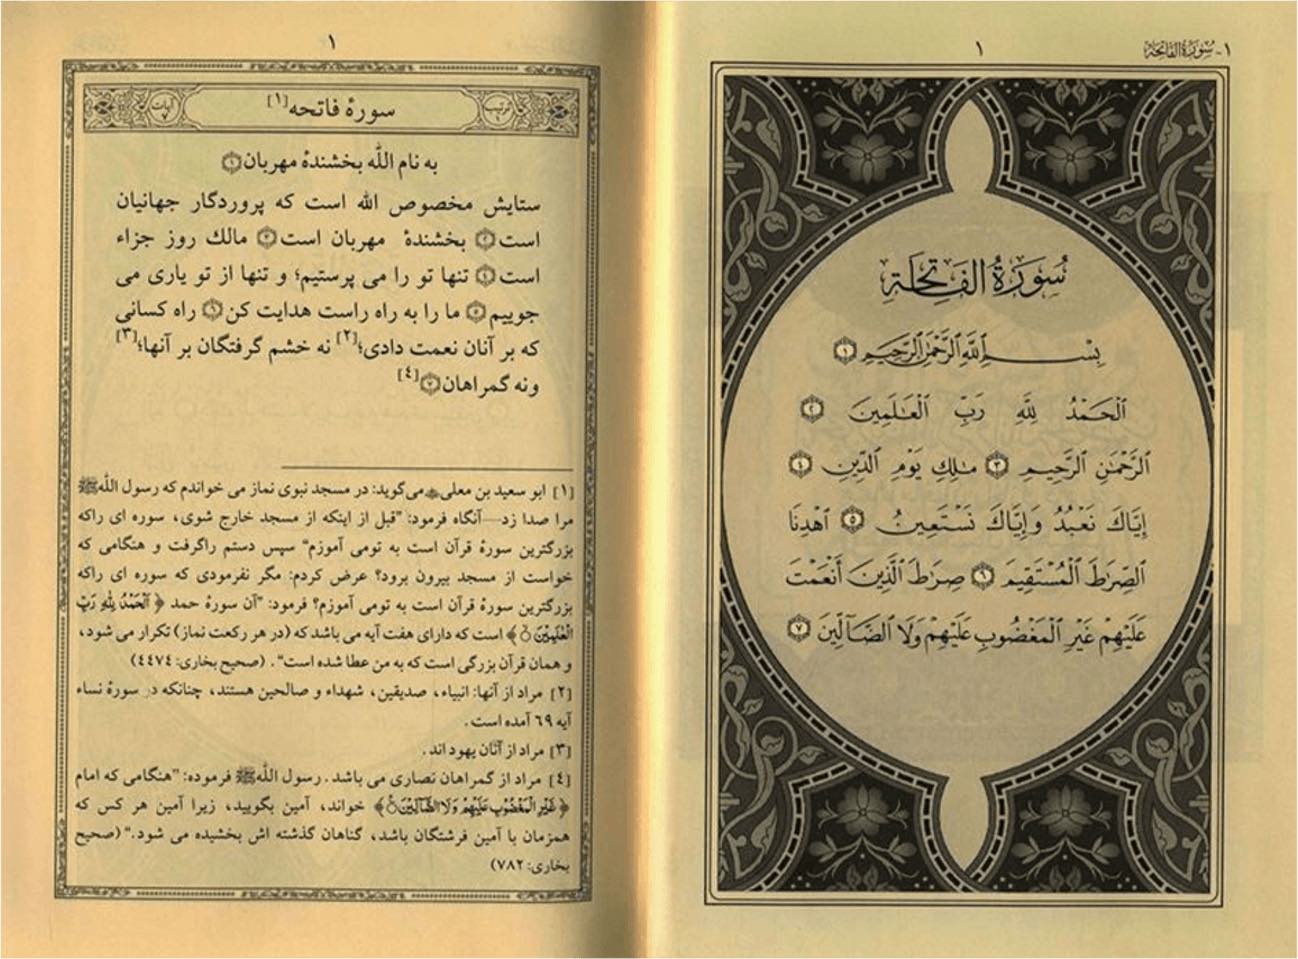 ١- سُورَةُ الفَاتِحَة
١
سُورَةُ الفَاتِحَةِ
بِسْمِ ٱللَّهِ ٱلرَّحْمَٰنِ ٱلرَّحِيمِ ١
ٱلْحَمْدُ لِلَّهِ رَبِّ ٱلْعَٰلَمِينَ ٢
ٱلرَّحْمَٰنِ ٱلرَّحِيمِ ٣ مَٰلِكِ يَوْمِ ٱلدِّينِ ٤
إِيَّاكَ نَعْبُدُ وَإِيَّاكَ نَسْتَعِينُ ٥ ٱهْدِنَا
ٱلصِّرَٰطَ ٱلْمُسْتَقِيمَ ٦ صِرَٰطَ ٱلَّذِينَ أَنْعَمْتَ
عَلَيْهِمْ غَيْرِ ٱلْمَغْضُوبِ عَلَيْهِمْ وَلَا ٱلضَّآلِّينَ ٧
١
ترتیب ١ سورۀ فاتحه[١] آیات ٧
به نام الله بخشندۀ مهربان ١
ستایش مخصوص الله است که پروردگار جهانیان
است ٢ بخشندۀ مهربان است ٣ مالك روز جزاء
است ٤ تنها تو را می پرستیم؛ و تنها از تو یاری می
جوییم ٥ ما را به راه راست هدایت کن ٦ راه کسانی
که بر آنان نعمت دادی؛[٢] نه خشم گرفتگان بر آنها؛[٣]
ونه گمراهان ٧[٤]
[١] ابو سعید بن معلی می‌گوید: در مسجد نبوی نماز می خواندم که رسول الله ﷺ
مرا صدا زد—آنگاه فرمود: "قبل از اینکه از مسجد خارج شوی، سوره ای راکه
بزرگترین سورۀ قرآن است به تومی آموزم" سپس دستم راگرفت و هنگامی که
خواست از مسجد بیرون برود؟ عرض کردم: مگر نفرمودی که سوره ای راکه
بزرگترین سورۀ قرآن است به تومی آموزم؟ فرمود: "آن سورۀ حمد ﴿ ٱلْحَمْدُ لِلَّهِ رَبِّ
ٱلْعَٰلَمِينَ ﴾ است که دارای هفت آیه می باشد که (در هر رکعت نماز) تکرار می شود،
و همان قرآن بزرگی است که به من عطا شده است". (صحیح بخاری: ٤٤٧٤)
[٢] مراد از آنها: انبیاء، صدیقین، شهداء و صالحین هستند، چنانکه در سورۀ نساء
آیه ٦٩ آمده است.
[٣] مراد از آنان یهود اند.
[٤] مراد از گمراهان نصاری می باشد. رسول الله ﷺ فرموده: "هنگامی که امام
﴿ غَيْرِ ٱلْمَغْضُوبِ عَلَيْهِمْ وَلَا ٱلضَّآلِّينَ ﴾ خواند، آمین بگویید، زیرا آمین هر کس که
همزمان با آمین فرشتگان باشد، گناهان گذشته اش بخشیده می شود." (صحیح
بخاری: ٧٨٢)